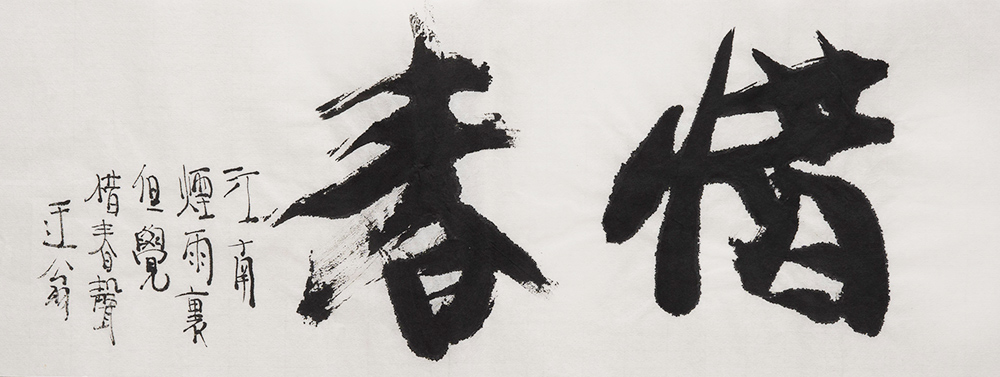 惜春
江南
煙雨裏
但覺
惜春聲
迂公翁